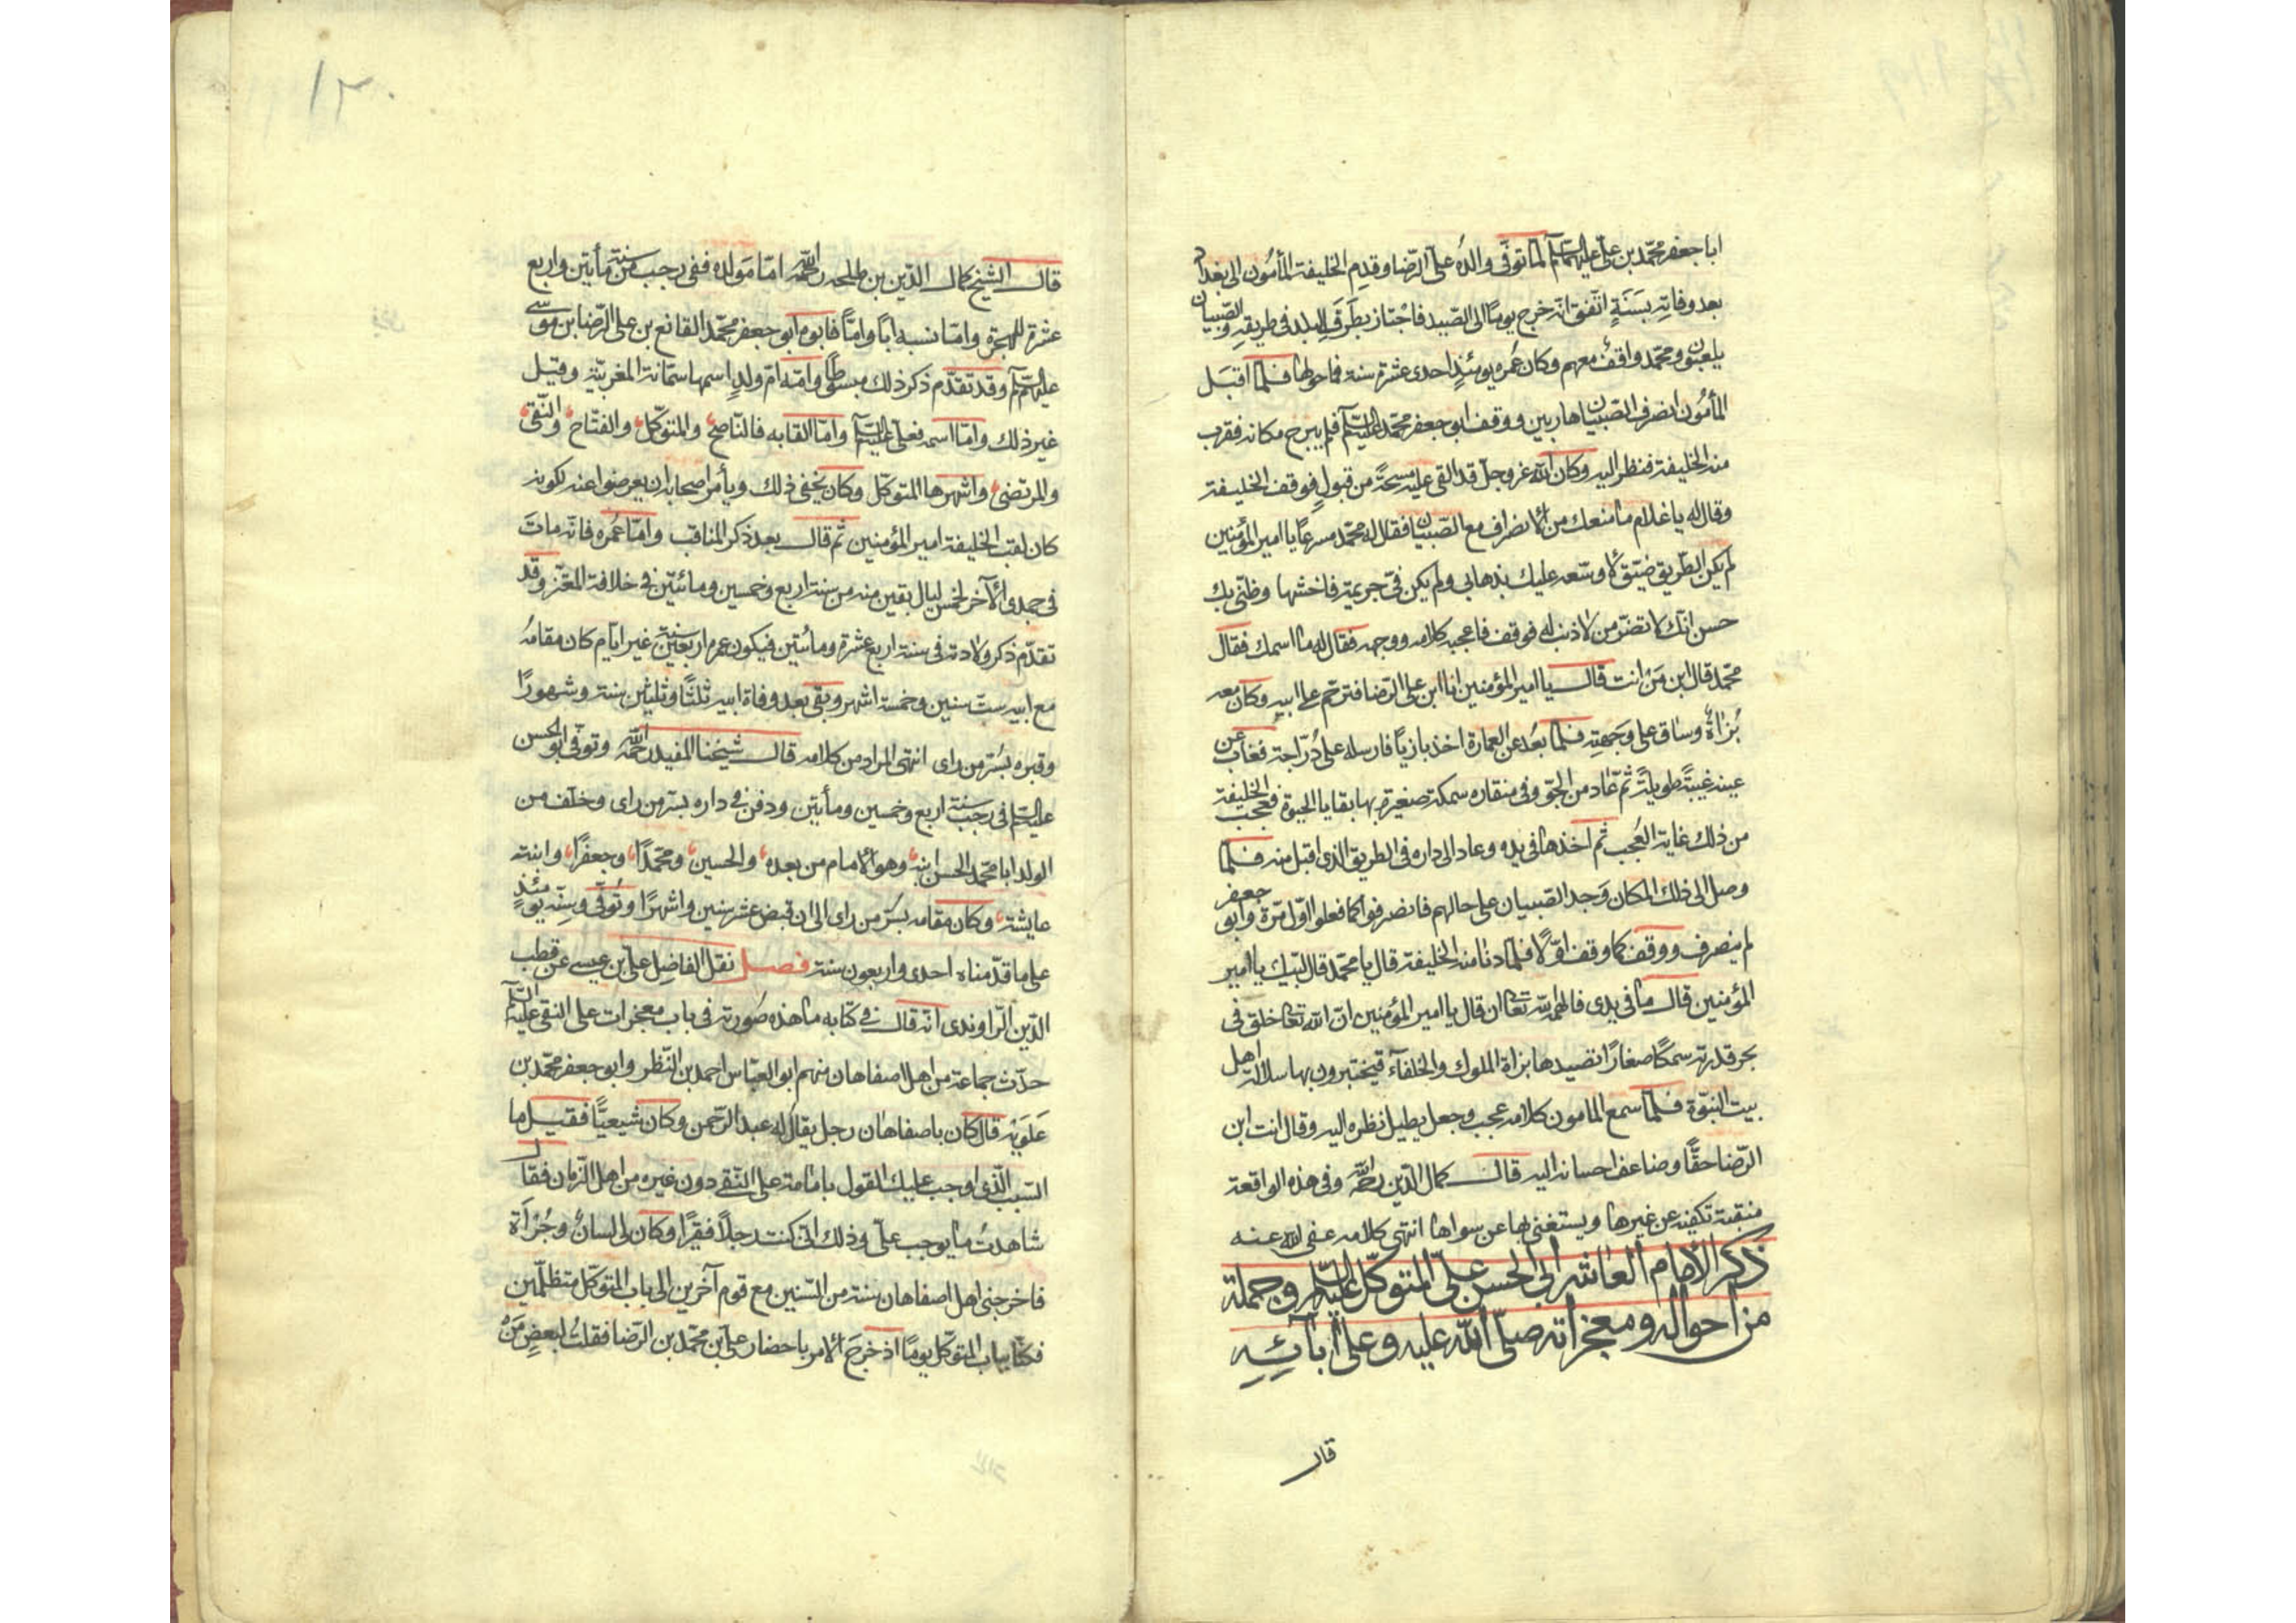 ابا جعفر محمّد بن علىّ عليهما السّلام لمّا توفّى والدُه علىّ الرّضا وقدم الخليفة المأمُون الى بغداد
بعد وفاته بسَنَةٍ اتّفق انّه خرج يومًا الى الصّيد فاجتاز بطَرَفِ البلد فى طريقه والصّبيان
يلعبون ومحمّد واقفٌ معهم وكان عُمره يومئذٍ احدى عشرة سنة فما حولها فلمّا اقبَل
المأمُون انصرف الصّبيان هاربين ووقف ابو جعفر محمّد عليه السّلام فلم يبرح مكانه فقرب
منه الخليفة فنظر اليه وكان الله عزوجلّ قد القى عليه مسحةً من قبولٍ فوقف الخليفة
وقال له يا غلام ما منعك من الانصراف مع الصّبيان فقال له محمّد مسرعًا يا امير المؤمنين
لم يكن الطّريق ضيّق لاوسّعه عليك بذهابى ولم يكن فىّ جريمة فاخشها وظنّى بك
حسن انّك لا تضرّ من لا ذنب له فوقف فاعجبه كلامه ووجهه فقال له ما اسمك فقال
محمّد قال ابن مَنْ انت قال يا امير المؤمنين انا ابن على الرّضا فترحّم على ابيه وكان معه
بُزاةٌ وساق على وَجهتِه فلمّا بعُد عن العمارة اخذ بازيًا فارسله على دُرّاجة فغاب عن
عينه غيبةً طويلةً ثمّ عاد من الجوّ وفى منقاره سمكة صغيرة بها بقايا الحيوة فعجب الخليفة
من ذلك غاية العُجب ثمّ اخذها فى يده وعاد الى داره فى الطريق الذى اقبل منه فلمّا
وصل الى ذلك المكان وَجد الصّبيان على حالهم فانصرفوا كما فعلوا اوّل مرّة وابو جعفر
لم ينصرف ووقف كما وقف اوّلًا فلمّا دنا منه الخليفة قال يا محمّد قال لبّيك يا امير
المؤمنين قال ما فى يدى فالهمه الله تعالى ان قال يا امير المؤمنين انّ الله تعالى خلق فى
بحر قدرته سمكًا صغارًا تصيدها بزاة الملوك والخلفآء فيختبرون بها سلالة اهل
بيت النبوّة فلمّا سمع المامون كلامه عجب وجعل يطيل نظره اليه وقال انت ابن
الرّضا حقًّا وضاعف احسانه اليه قال كمال الدّين رحمه الله وفى هذه الواقعة
منقبة تكفيه عن غيرها ويستغنى بها عن سواها انتهى كلامه عفى الله عنه
ذكر الامام العاشر ابى الحسن علىّ المتوكّل عليه السّلام وجملة
من احواله ومعجزاته صلّى الله عليه وعلى آبائِهِ
قال
١٢٠
قال الشيخ كمال الدّين بن طلحه رحمه الله امّا مَولده ففى رجب من سنة مأيتين واربع
عشرة للهجرة وامّا نسبه اباً وامّاً فابوه ابو جعفر محمّد القانع بن على الرّضا بن موسى
عليهم السّلام وقد تقدّم ذكر ذلك مبسوطًا وامّه امّ ولدٍ اسمها سمّانة المغربيّة وقيل
غير ذلك وامّا اسمه فعلىّ عليه السّلام وامّا القابه فالنّاصح والمتوكّل والفتّاح والنّقى
والمرتضى واشهرها المتوكّل وكان يخفى ذلك ويأمر اصحابه ان يعرضوا عنه لكونه
كان لقب الخليفة امير المؤمنين ثمّ قال بعد ذكر المناقب وامّا عُمره فانّه ماتَ
فى جمدى الآخر لخمس ليال بقين منه من سنة اربع وخمسين ومائتين فى خلافة المعتزّ وقد
تقدّم ذكر ولادته فى سنة اربع عشرة ومأتين فيكون عمره اربعين سنة غير ايّام كان مقامهُ
مع ابيه ستّ سنين وخمسة اشهر وبقى بعد وفاة ابيه ثلثًا وثلثين سنة وشهورًا
وقبره بسُرّ من راى انتهى المراد من كلامه قال شيخنا المفيد رحمه الله وتوفّى ابو الحسن
عليه السّلام فى رجب سنة اربع وخمسين ومأيتين ودفن فى داره بسرّ من راى وخلّف من
الولد ابا محمّد الحسن ابنه وهو الامام من بعده والحسين ومحمّدًا وجعفرًا وابنته
عايشة وكان مقامه بسرّ من راى الى ان قبض عشر سنين واشهرًا وتُوفّى وسِنّه يومئذٍ
على ما قدّمناه احدى واربعون سنة فصل نقل الفاضِل على بن عيسى عن قطب
الدّين الرّاوندى انّه قال فى كتابه ما هذه صُورته فى باب معجزات على النقى عليه السّلام
حدّث جماعة من اهل اصفاهان منهم ابو العبّاس احمد بن النّظر وابو جعفر محمّد بن
عَلَويّه قال كان باصفاهان رجل يقال له عبد الرّحمن وكان شيعيًّا فقيل ما
السّبب الّذى اوجب عليك القول بامامة على النّقى دون غيره من اهل الزّمان فقال
شاهدتُ ما يوجب علىّ وذلك انّى كنت رجلًا فقيرًا وكان لى لسانٌ وجُرْاَة
فاخرجنى اهل اصفاهان سنة من السّنين مع قوم آخرين الى باب المتوكّل متظلّمين
فكنّا بباب المتوكّل يومًا اذ خرجَ الامر باحضار على بن محمّد بن الرّضا فقلتُ لبعضِ مَنْ